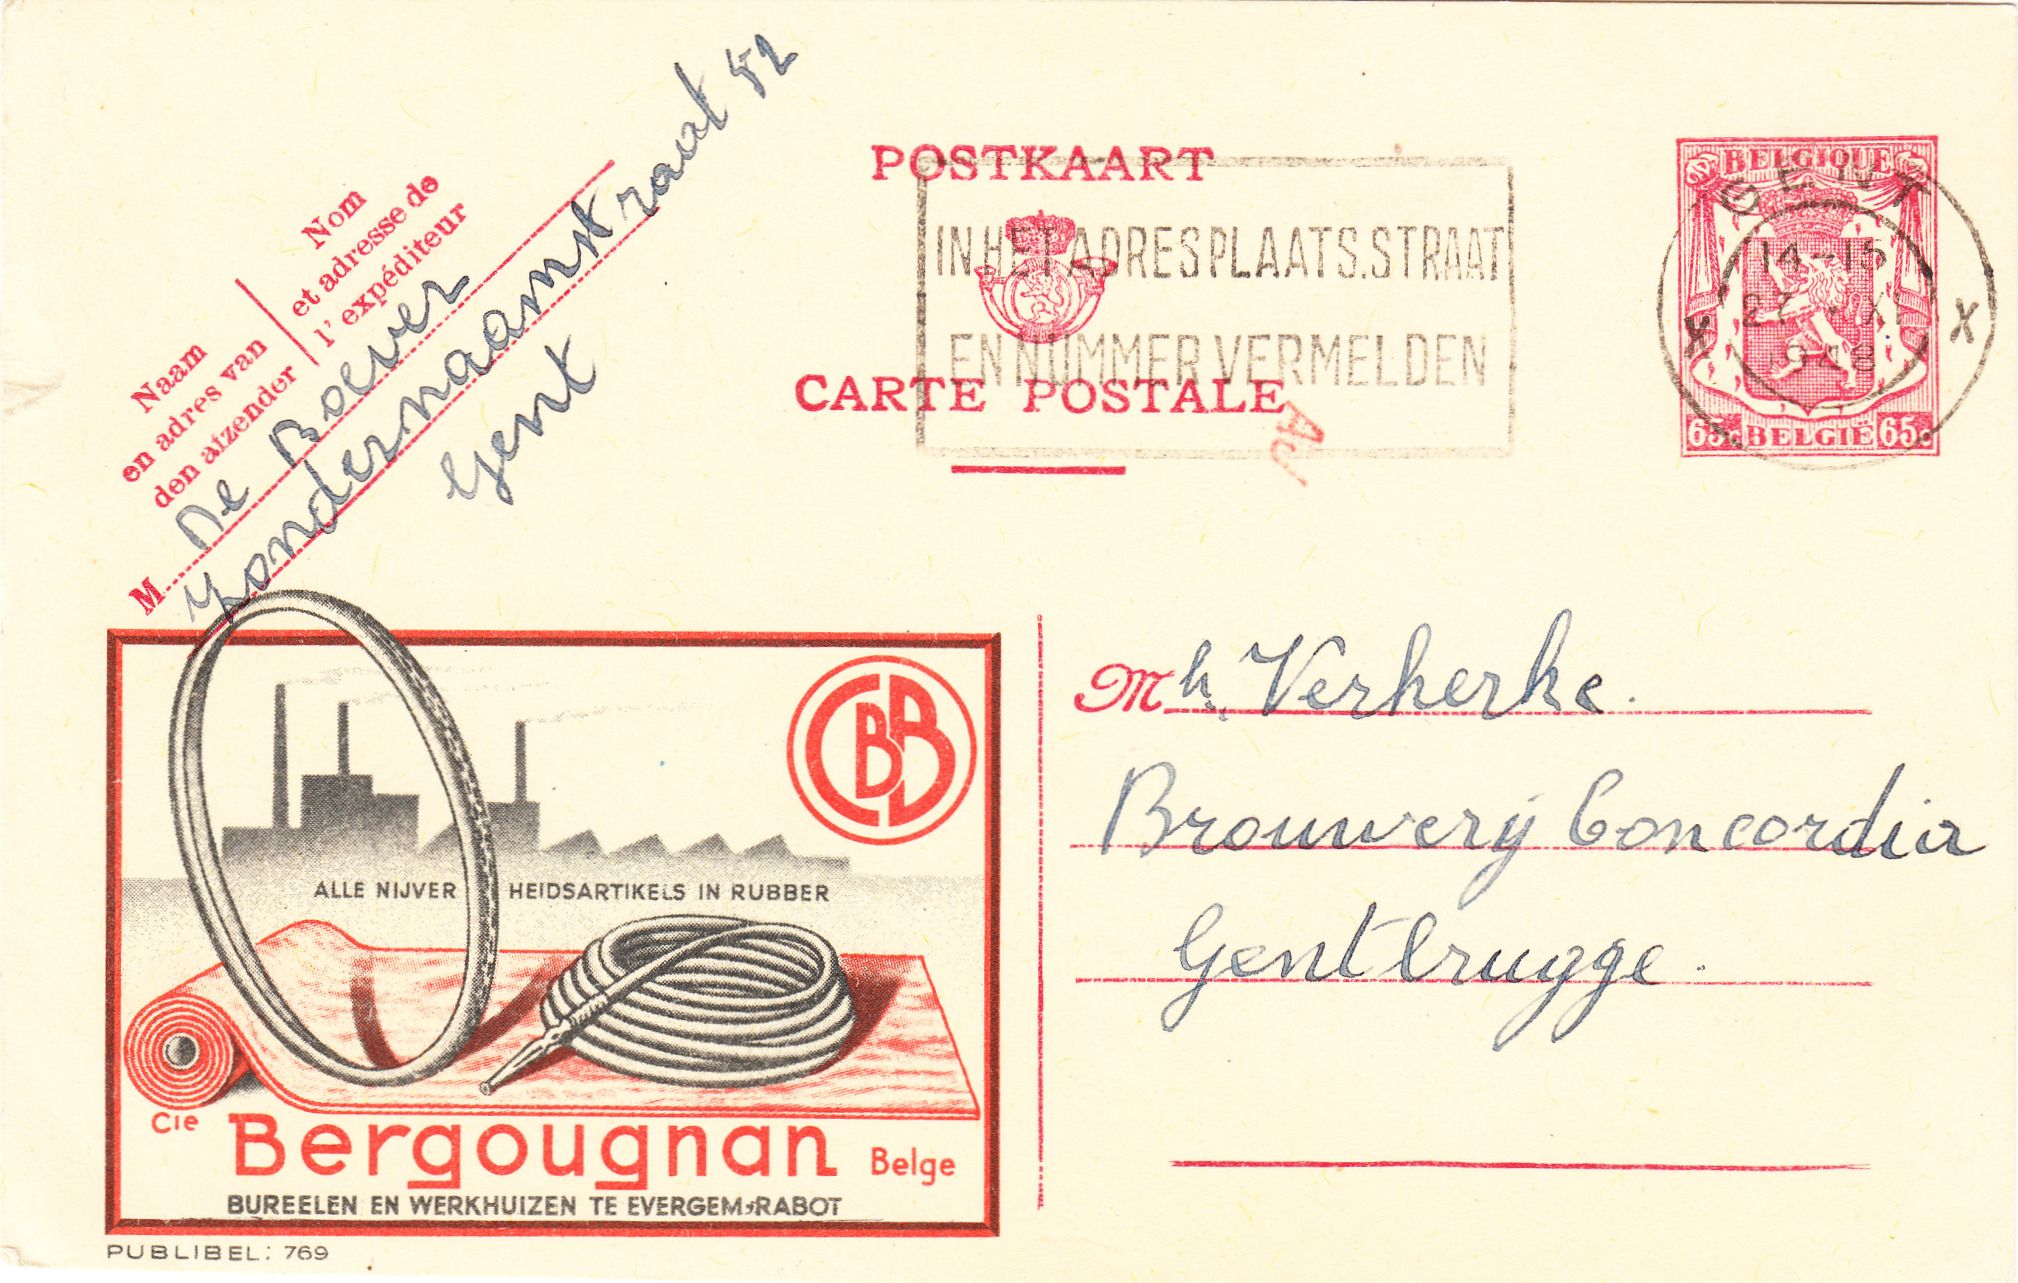 Naam
en adres van
den afzender
Nom
et adresse de
l'expéditeur
M
De Boever
Zondernaamstraat 52
Gent
POSTKAART
CARTE POSTALE
IN HET ADRES PLAATS. STRAAT
EN NUMMER VERMELDEN
BELGIQUE
65c BELGIË 65c
GENT
14-15
27 XI
948
X X
CBB
ALLE NIJVERHEIDSARTIKELS IN RUBBER
Cie Bergougnan Belge
BUREELEN EN WERKHUIZEN TE EVERGEM-RABOT
PUBLIBEL: 769
Mh Verherke.
Brouwerij Concordia
Gentbrugge.